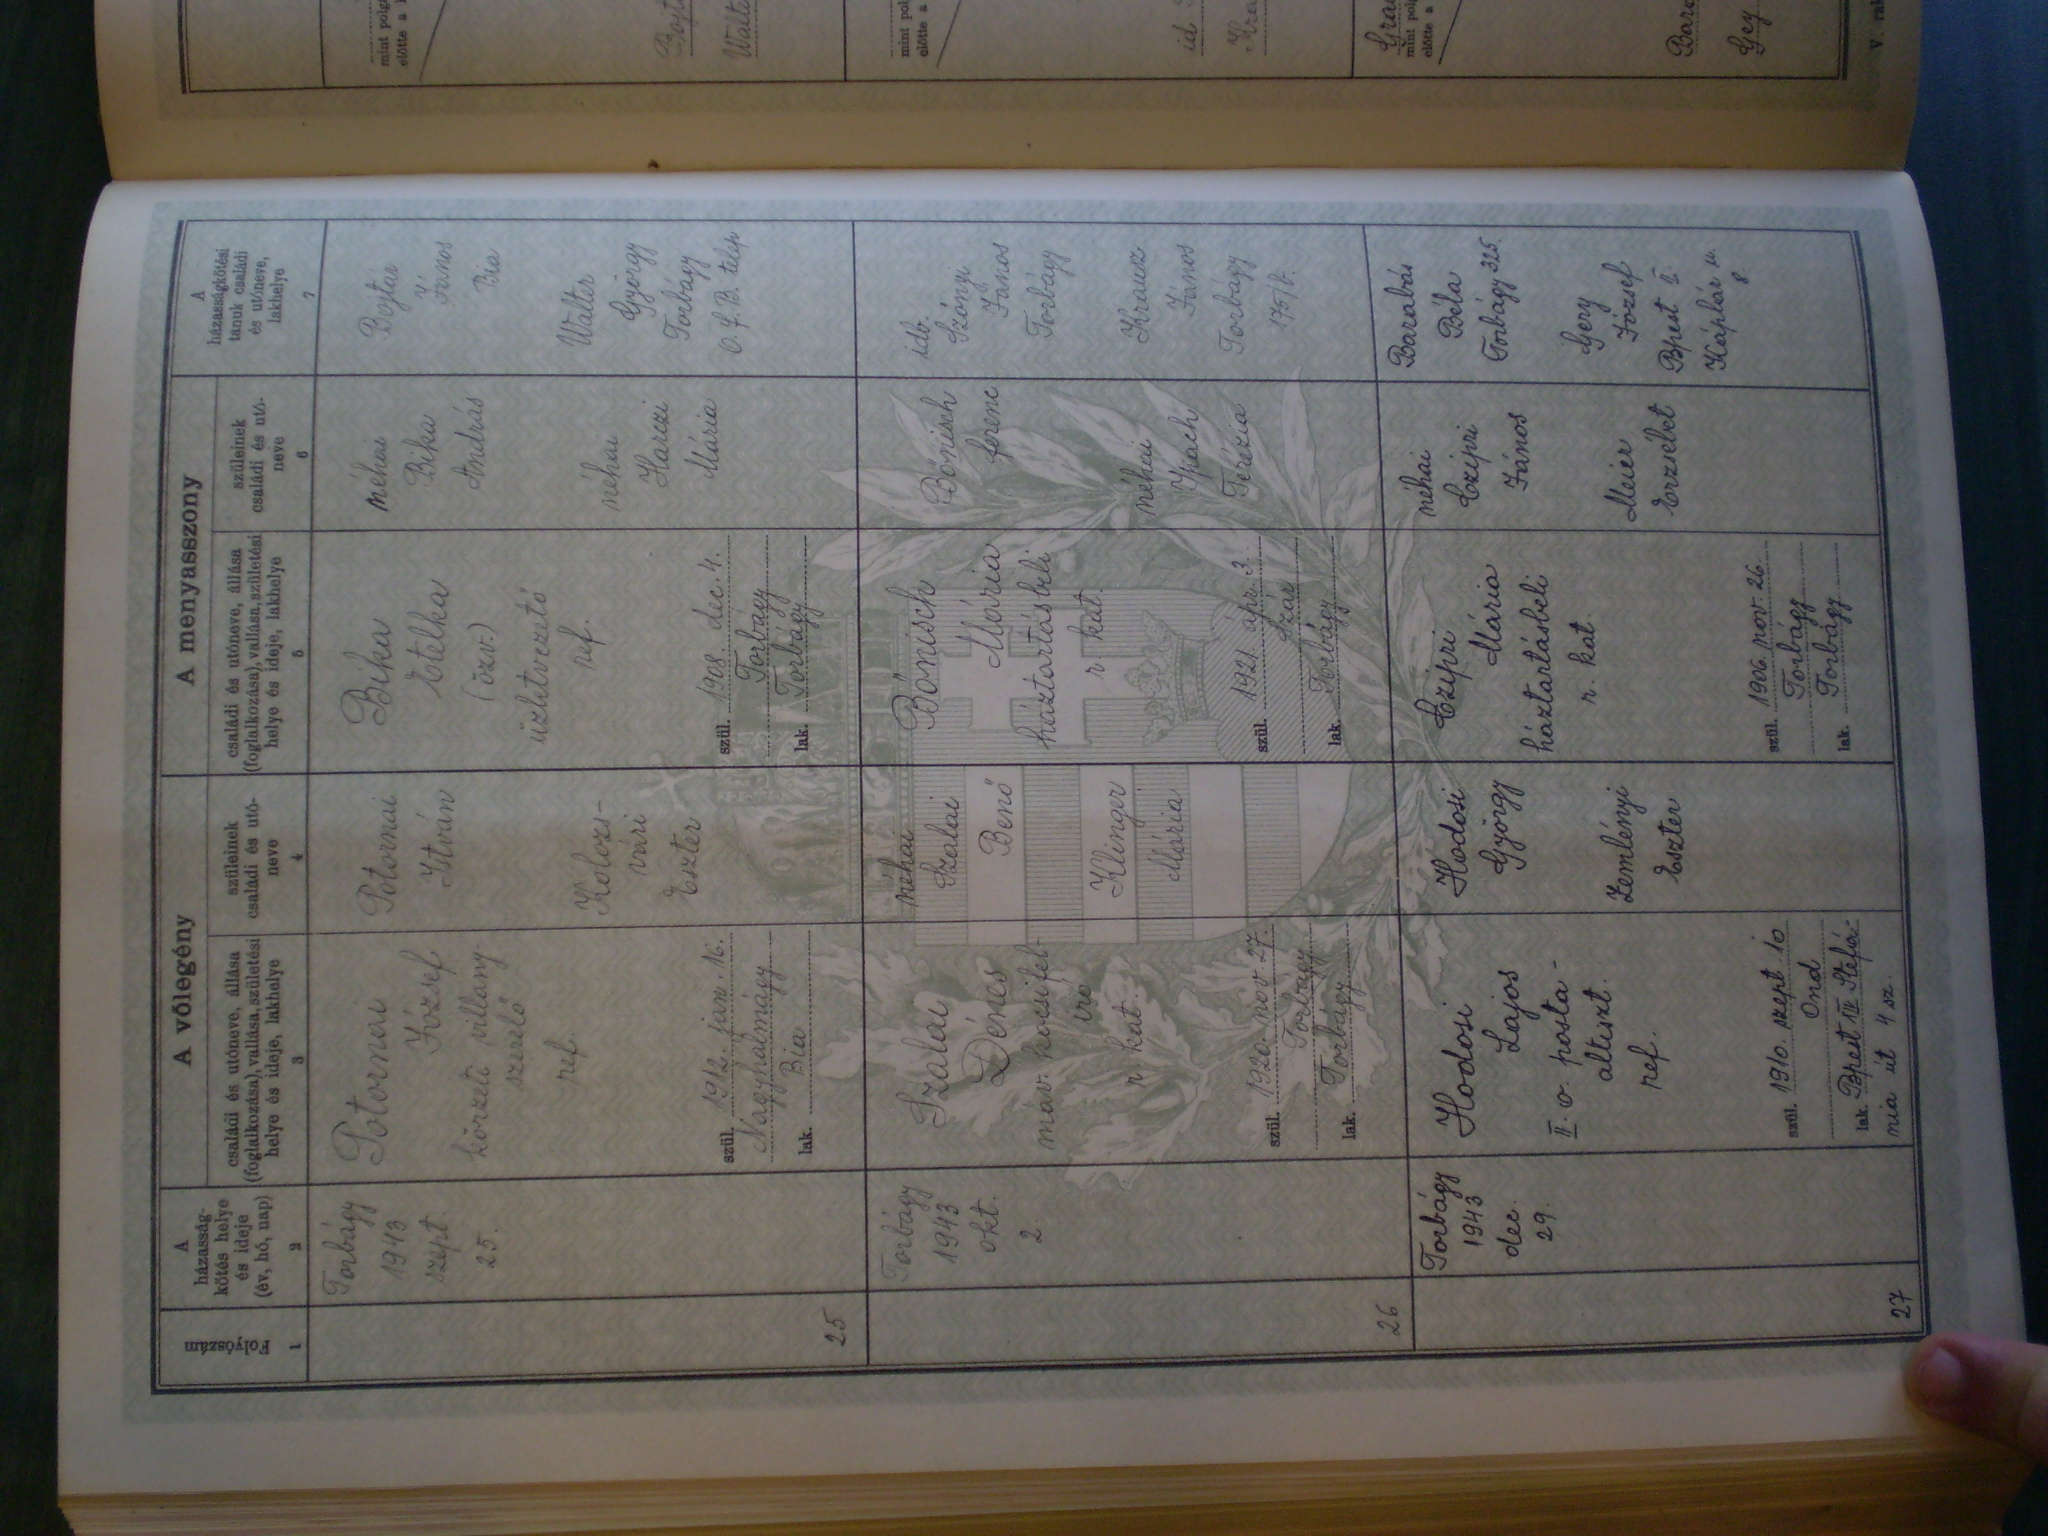 Folyószám
1
A
házasság-
kötés helye
és ideje
(év, hó, nap)
2
A vőlegény
családi és utóneve, állása
(foglalkozása), vallása, születési
helye és ideje, lakhelye
3
szüleinek
családi és utó-
neve
4
A menyasszony
családi és utóneve, állása
(foglalkozása), vallása, születési
helye és ideje, lakhelye
5
szüleinek
családi és utó-
neve
6
A
házasságkötési
tanuk családi
és utóneve,
lakhelye
7
25
Torbágy
1943
szept.
25.
Potornai
József
körzeti villany-
szerelő
ref.
szül. 1912. jan. 16.
Nagyhalmágy
Bia
lak.
Potornai
István
Kolozs-
vári
Eszter
Bika
Etelka
(özv.)
üzletvezető
ref.
szül. 1908. dec. 4.
Torbágy
lak. Torbágy
néhai
Bika
András
néhai
Harczi
Mária
Bojtár
János
Bia
Walter
György
Torbágy
O.F.B. telep
26
Torbágy
1943
okt.
2.
Szalai
Dénes
máv. kocsifel-
író
r. kat.
szül. 1920. nov. 27.
Torbágy
lak. Torbágy
néhai
Szalai
Benő
Klinger
Mária
Bönisch
Mária
háztartásbeli
r. kat.
szül. 1921. ápr. 3.
Szár
lak. Torbágy
Bönisch
Ferenc
néhai
Terézia
idb.
Szönyi
János
Torbágy
Krausz
János
Torbágy
175/b.
27
Torbágy
1943
dec.
29.
Hodosi
Lajos
II. o. posta-
altiszt.
ref.
szül. 1910. szept 10
Ond
lak. Bpest XIV Stefá-
nia út 4 sz.
Hodosi
György
Zemlényi
Eszter
Czipri
Mária
háztartásbeli
r. kat.
szül. 1906. nov. 26.
Torbágy
lak. Torbágy
néhai
Czipri
János
Meier
Erzsébet
Barabás
Béla
Torbágy 325.
Gery
József
Bpest II.
Káplár u.
8.
mint polg
előtte a
Bojt
Walt
mint polg
előtte a
id
Kra
mint polg
előtte a
Bara
Gey